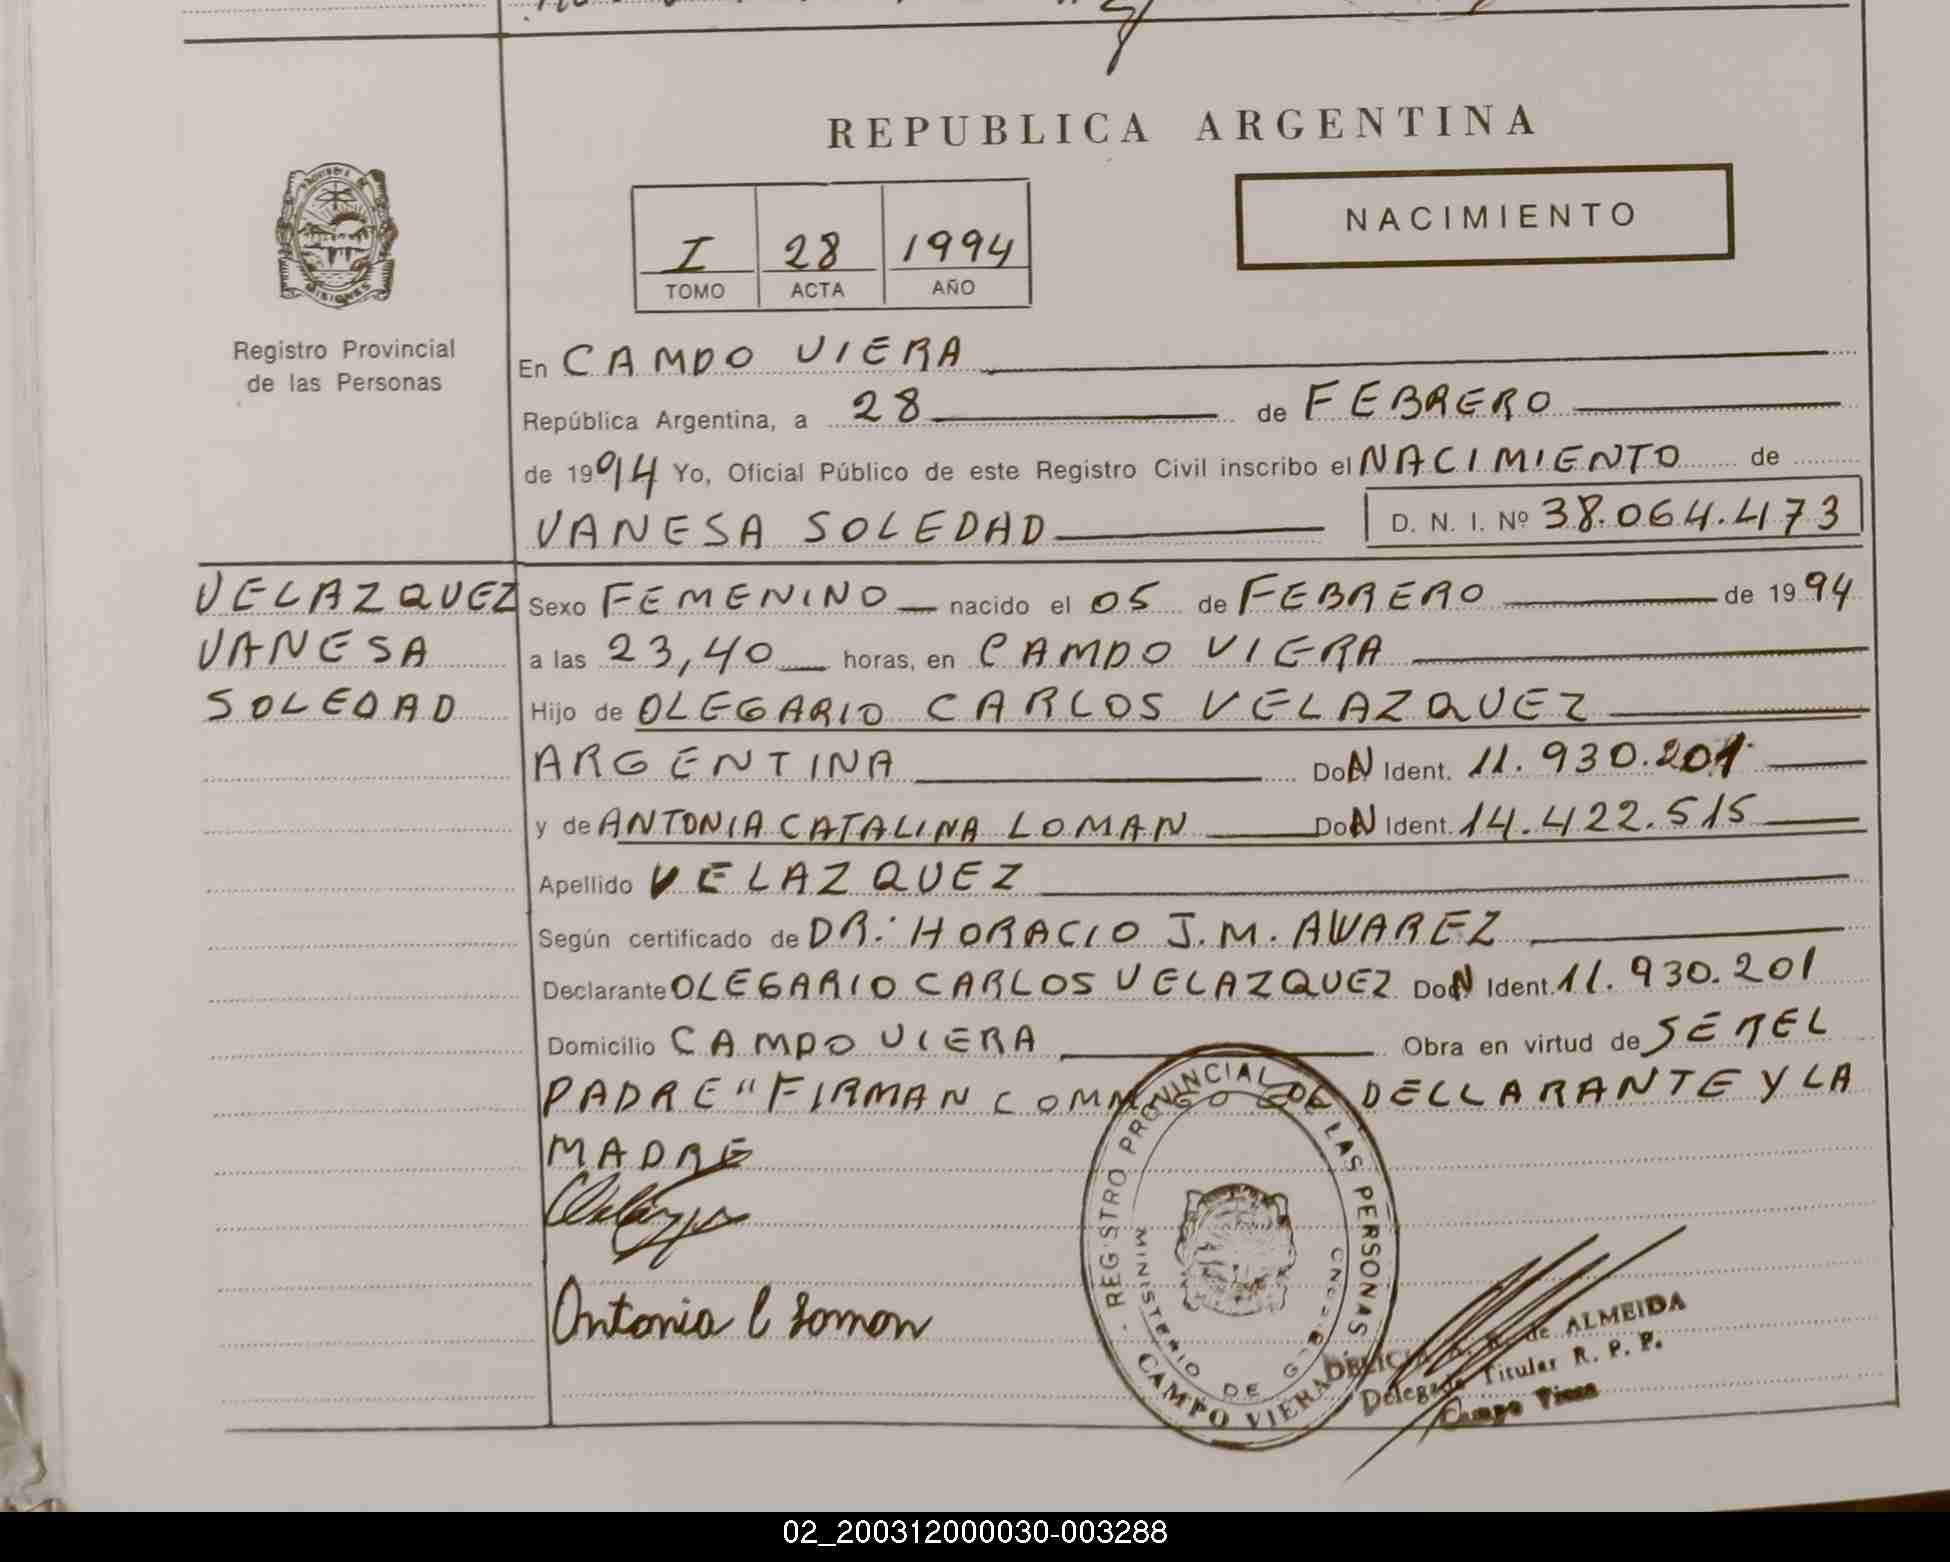 REPUBLICA ARGENTINA
NACIMIENTO
I 28 1994
TOMO ACTA AÑO
Registro Provincial
de las Personas
En CAMPO VIERA
República Argentina, a 28 de FEBRERO
de 1994 Yo, Oficial Público de este Registro Civil inscribo el NACIMIENTO de
VANESA SOLEDAD D. N. I. Nº 38.064.473
VELAZQUEZ
VANESA
SOLEDAD
Sexo FEMENINO nacido el 05 de FEBRERO de 1994
a las 23,40 horas, en CAMPO VIERA
Hijo de OLEGARIO CARLOS VELAZQUEZ
ARGENTINA DoN Ident. 11.930.201
y de ANTONIA CATALINA LOMAN DoN Ident. 14.422.515
Apellido VELAZQUEZ
Según certificado de DR: HORACIO J.M. ALVAREZ
Declarante OLEGARIO CARLOS VELAZQUEZ DoN Ident. 11.930.201
Domicilio CAMPO VIERA Obra en virtud de SER EL
PADRE "FIRMAN COMMIGO EL DECLARANTE Y LA
MADRE
Antonia C Loman
REGISTRO PROVINCIAL DE LAS PERSONAS
MINISTERIO DE
CAMPO VIERA
de ALMEIDA
Delegada Titular R. P. P.
Campo Viera
02_200312000030-003288